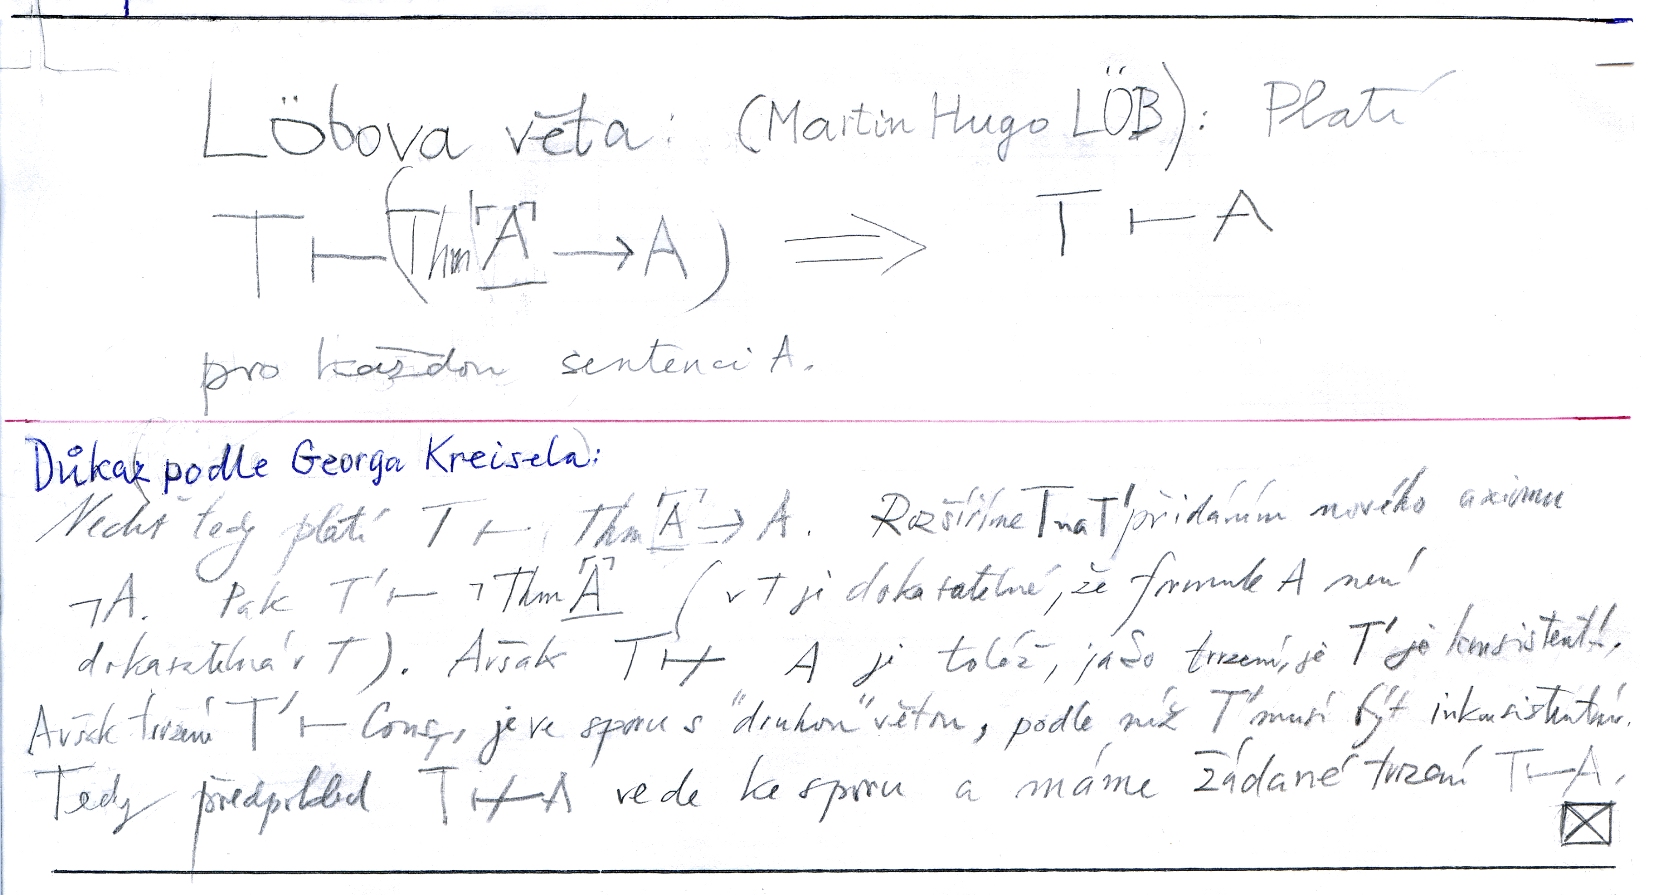 Löbova věta: (Martin Hugo LÖB): Platí
T ⊢ (Thm⌜A⌝ → A) ⟹ T ⊢ A
pro každou sentenci A.
Důkaz (podle Georga Kreisela):
Nechť tedy platí T ⊢ Thm⌜A⌝ → A. Rozšíříme T na T' přidáním nového axiomu
¬A. Pak T' ⊢ ¬Thm⌜A⌝ (v T je dokazatelné, že formule A není
dokazatelná v T). Avšak T ⊬ A je totéž, jako tvrzení, že T' je konsistentní.
Avšak tvrzení T' ⊢ Cons_T' je ve sporu s "druhou" větou, podle níž T' musí být inkonsistentní.
Tedy předpoklad T ⊬ A vede ke sporu a máme žádané tvrzení T ⊢ A.